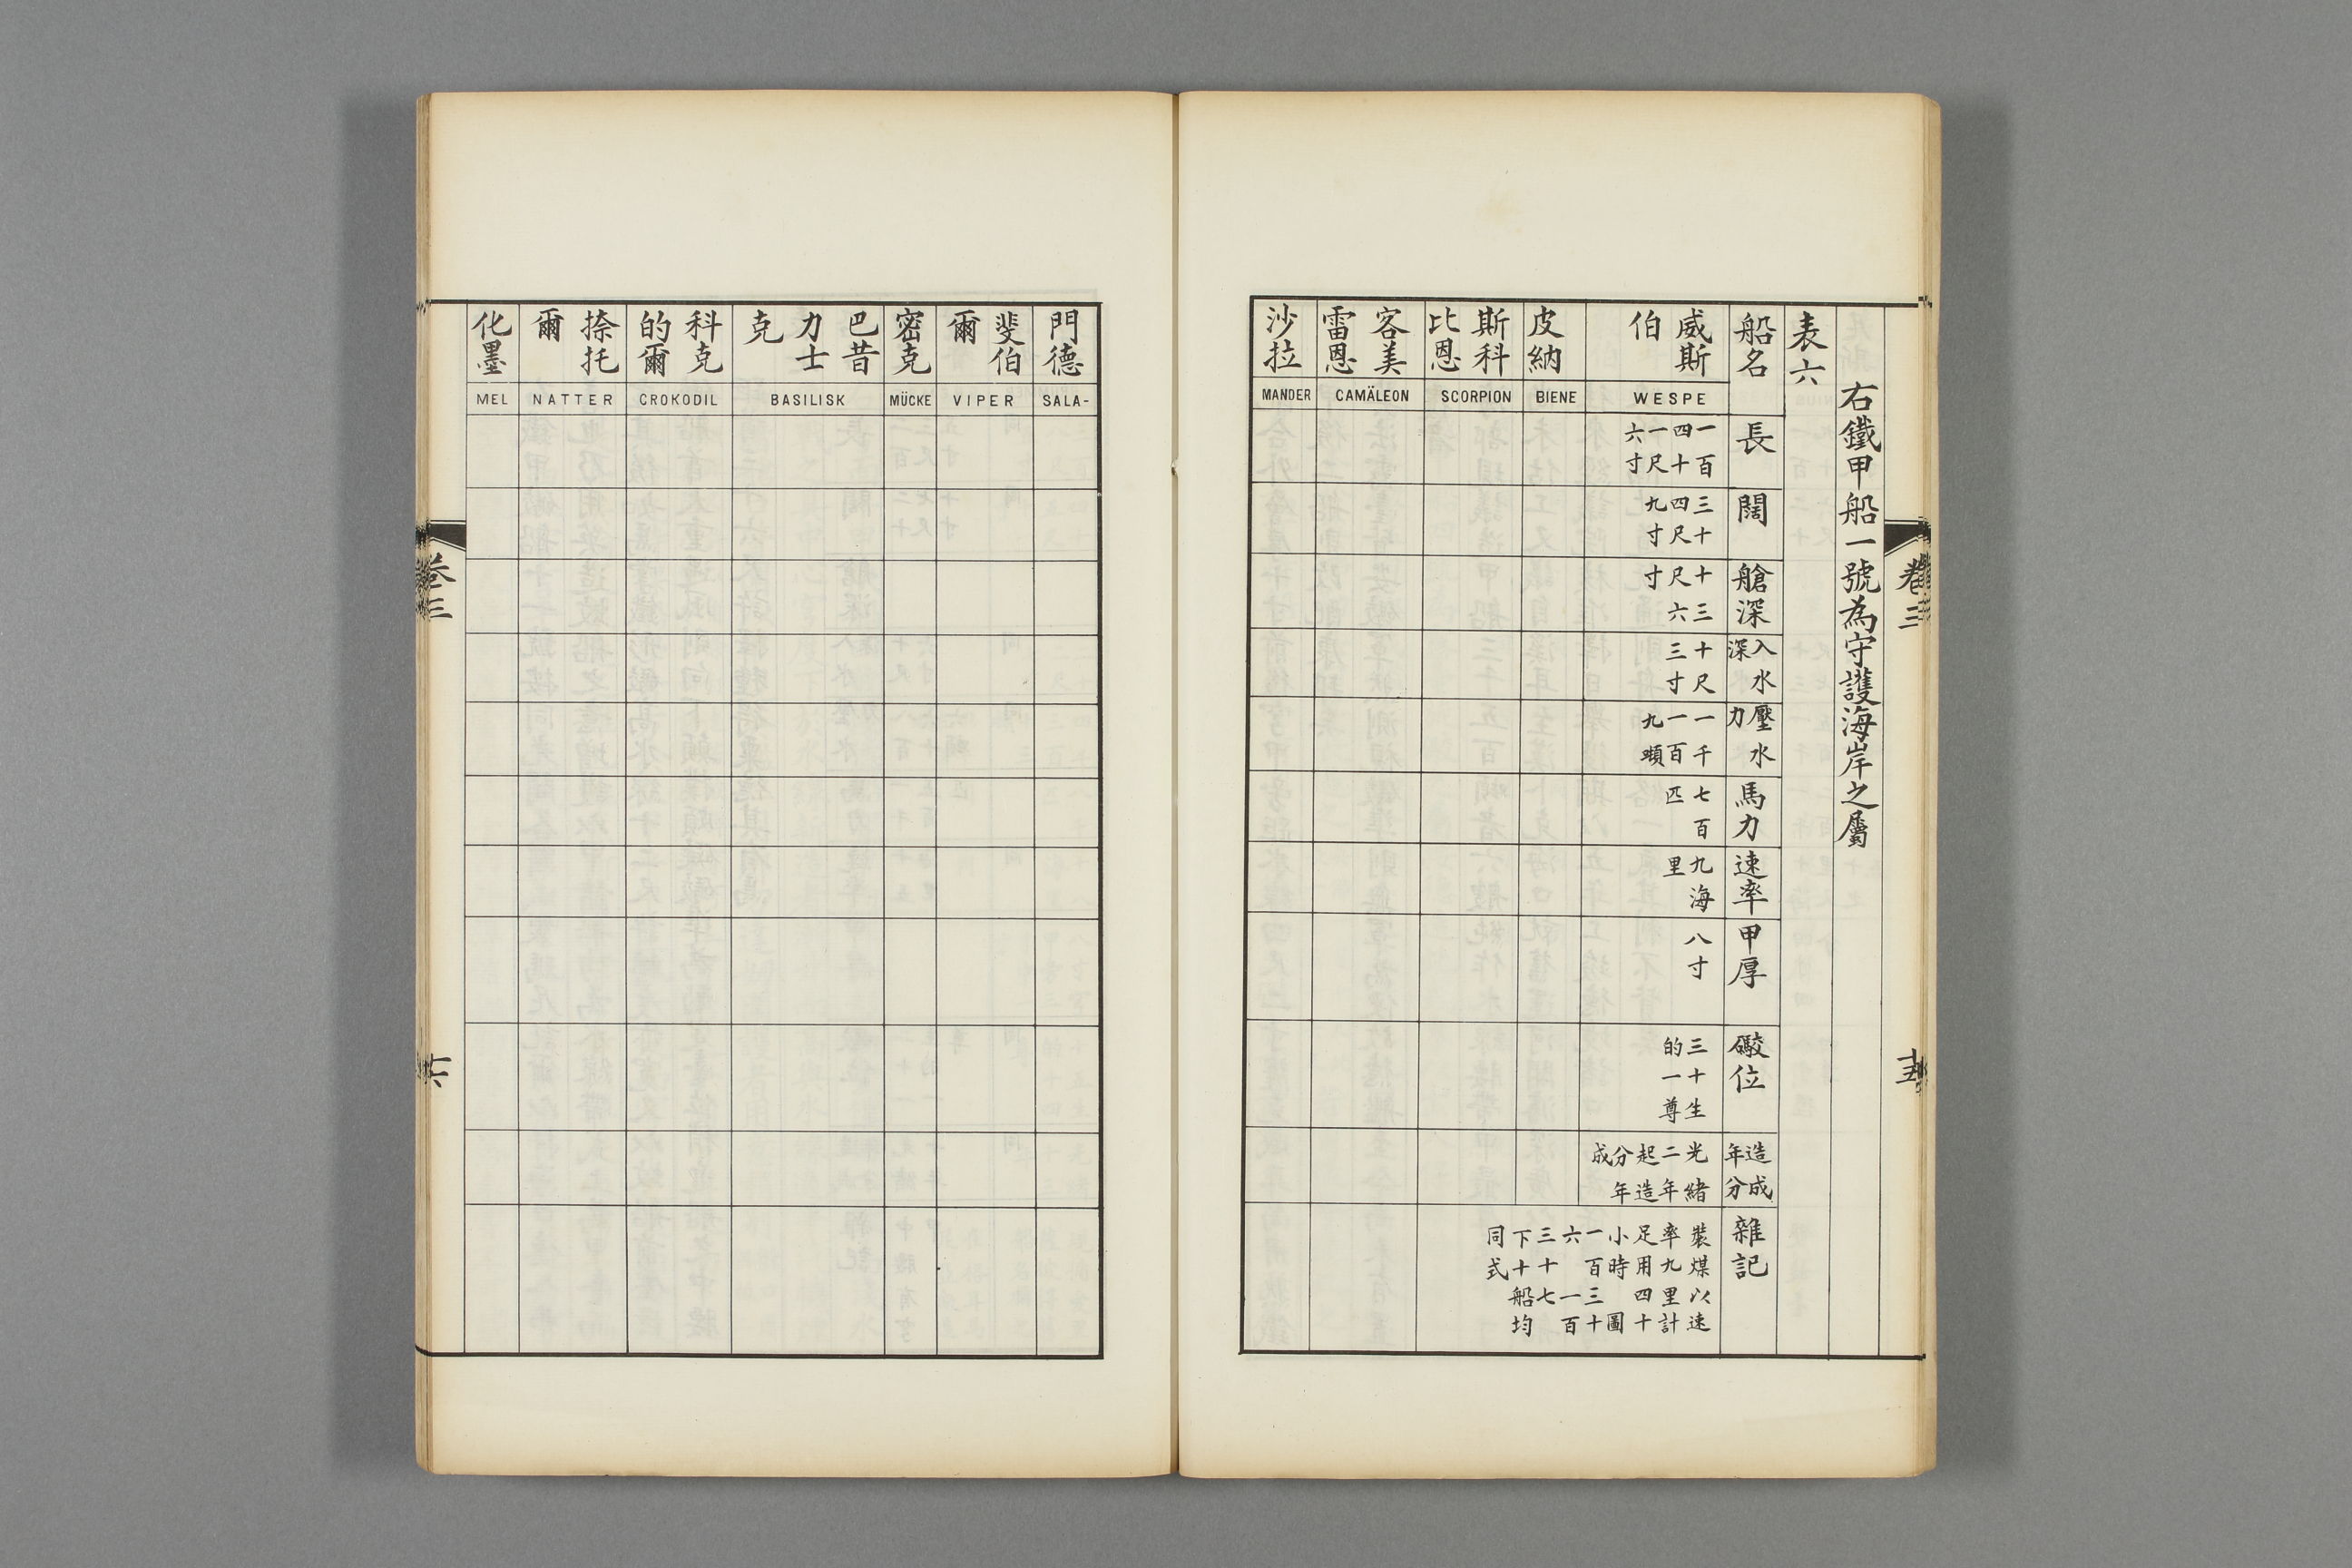 卷三
十五
右鐵甲船一號為守護海岸之屬
表六
船名
長
闊
艙深
入水
深
壓水
力
馬力
速率
甲厚
礮位
造成
年分
雜記
威斯
伯
WESPE
一百
四十
一尺
六寸
三十
四尺
九寸
十三
尺六
寸
十尺
三寸
一千
一百
九噸
七百
匹
九海
里
八寸
三十生
的一尊
光緒
二年
起造
分年
成
裝煤以速
率九里計
足用四十
小時 圖
一百三十
六 一百
三十七
下十船均
同式
皮納
BIENE
斯科
比恩
SCORPION
客美
雷恩
CAMÄLEON
沙拉
MANDER
門德
SALA-
斐伯
爾
VIPER
密克
MÜCKE
巴昔
力士
克
BASILISK
科克
的爾
CROKODIL
捺托
爾
NATTER
化墨
MEL
卷三
十六